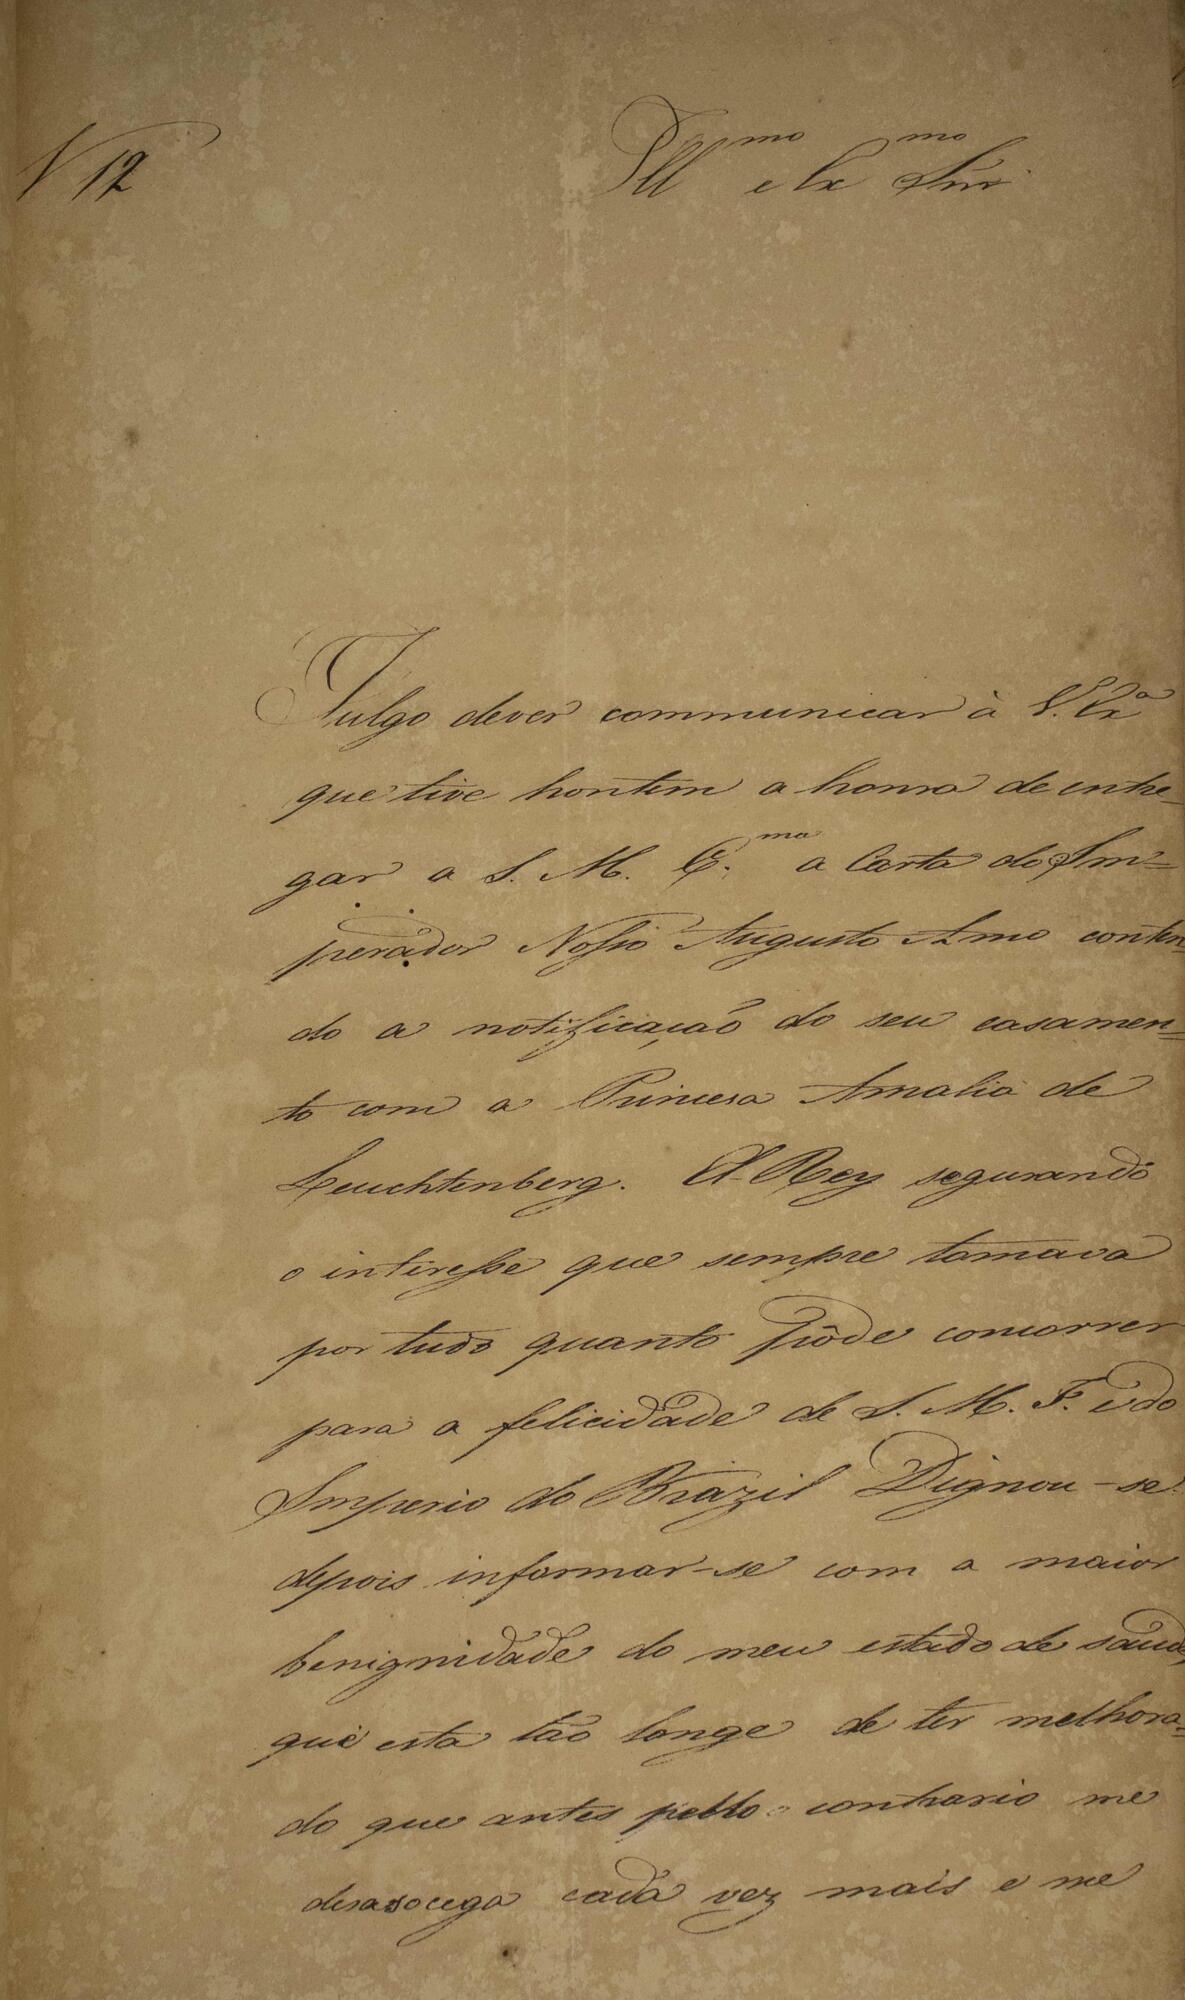 N 12
Ill<sup>mo</sup> e Ex<sup>mo</sup> Snr.
Julgo dever communicar à V. Ex<sup>a</sup>
que tive hontem a honra de entre-
gar a S. M. C.<sup>ma</sup> a Carta do Im=
perador Nosso Augusto Amo conten=
do a notificação do seu casamen=
to com a Princesa Amalia de
Leuchtenberg. El-Rey segurando
o interesse que sempre tomava
por tudo quanto pôde concorrer
para a felicidade de S. M. F. e do
Imperio do Brazil Dignou-se
depois informar-se com a maior
benignidade do meu estado de saude,
que esta tão longe de ter melhora=
do que antes pello contrario me
desasocega cada vez mais e me